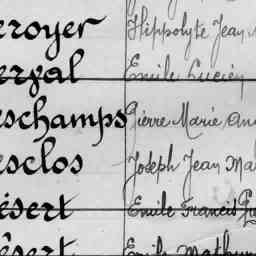 erroyer Hippolyte Jean
erval Emile Lucien
eschamps Pierre Marie
esclos Joseph Jean Ma
ésert Emile Francis
ésert Emile Mathur